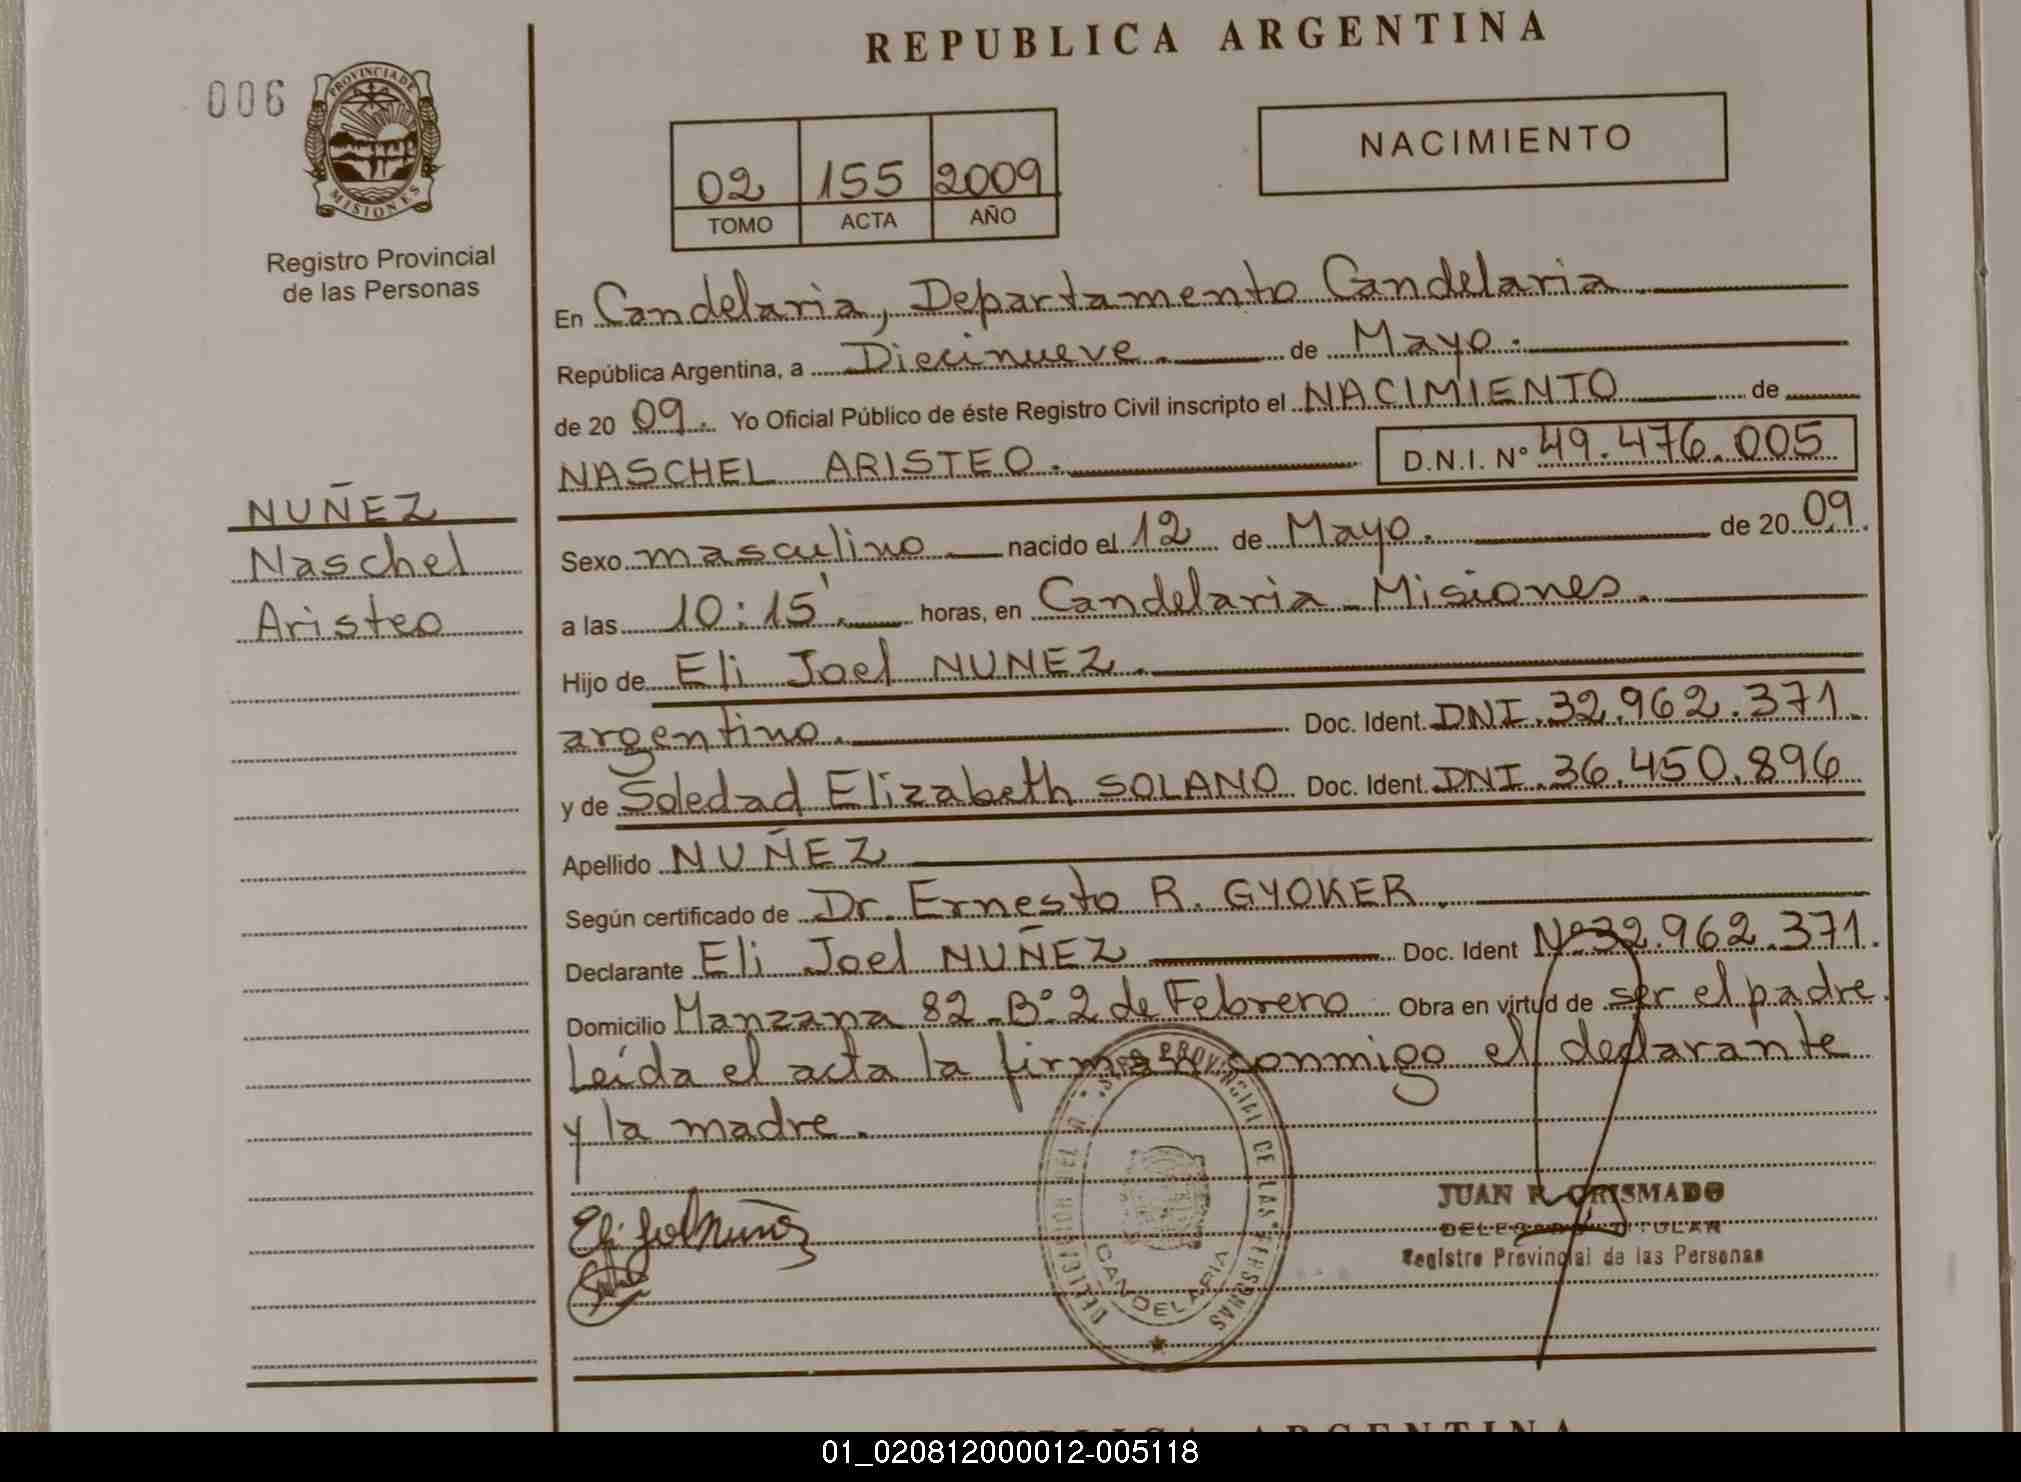 REPUBLICA ARGENTINA
006
PROVINCIA DE
MISIONES
Registro Provincial
de las Personas
NACIMIENTO
02 155 2009
TOMO ACTA AÑO
En Candelaria, Departamento Candelaria
República Argentina, a Diecinueve. de Mayo.
de 20 09. Yo Oficial Público de éste Registro Civil inscripto el NACIMIENTO de
NASCHEL ARISTEO. D.N.I. N° 49.476.005
NUÑEZ
Naschel
Aristeo
Sexo masculino nacido el 12 de Mayo. de 20 09.
a las 10:15'. horas, en Candelaria - Misiones.
Hijo de Eli Joel NUNEZ.
argentino. Doc. Ident. DNI. 32.962.371.
y de Soledad Elizabeth SOLANO Doc. Ident. DNI. 36.450.896
Apellido NUÑEZ
Según certificado de Dr. Ernesto R. GYOKER.
Declarante Eli Joel NUÑEZ Doc. Ident N° 32.962.371.
Domicilio Manzana 82 - B° 2 de Febrero Obra en virtud de ser el padre.
Leída el acta la firman conmigo el declarante
y la madre.
Eli Joel Nuñez
PROVINCIAL DE LAS PERSONAS
CANDELARIA
JUAN R. CRISMADO
DELEGADO TITULAR
Registro Provincial de las Personas
REPUBLICA ARGENTINA
01_020812000012-005118